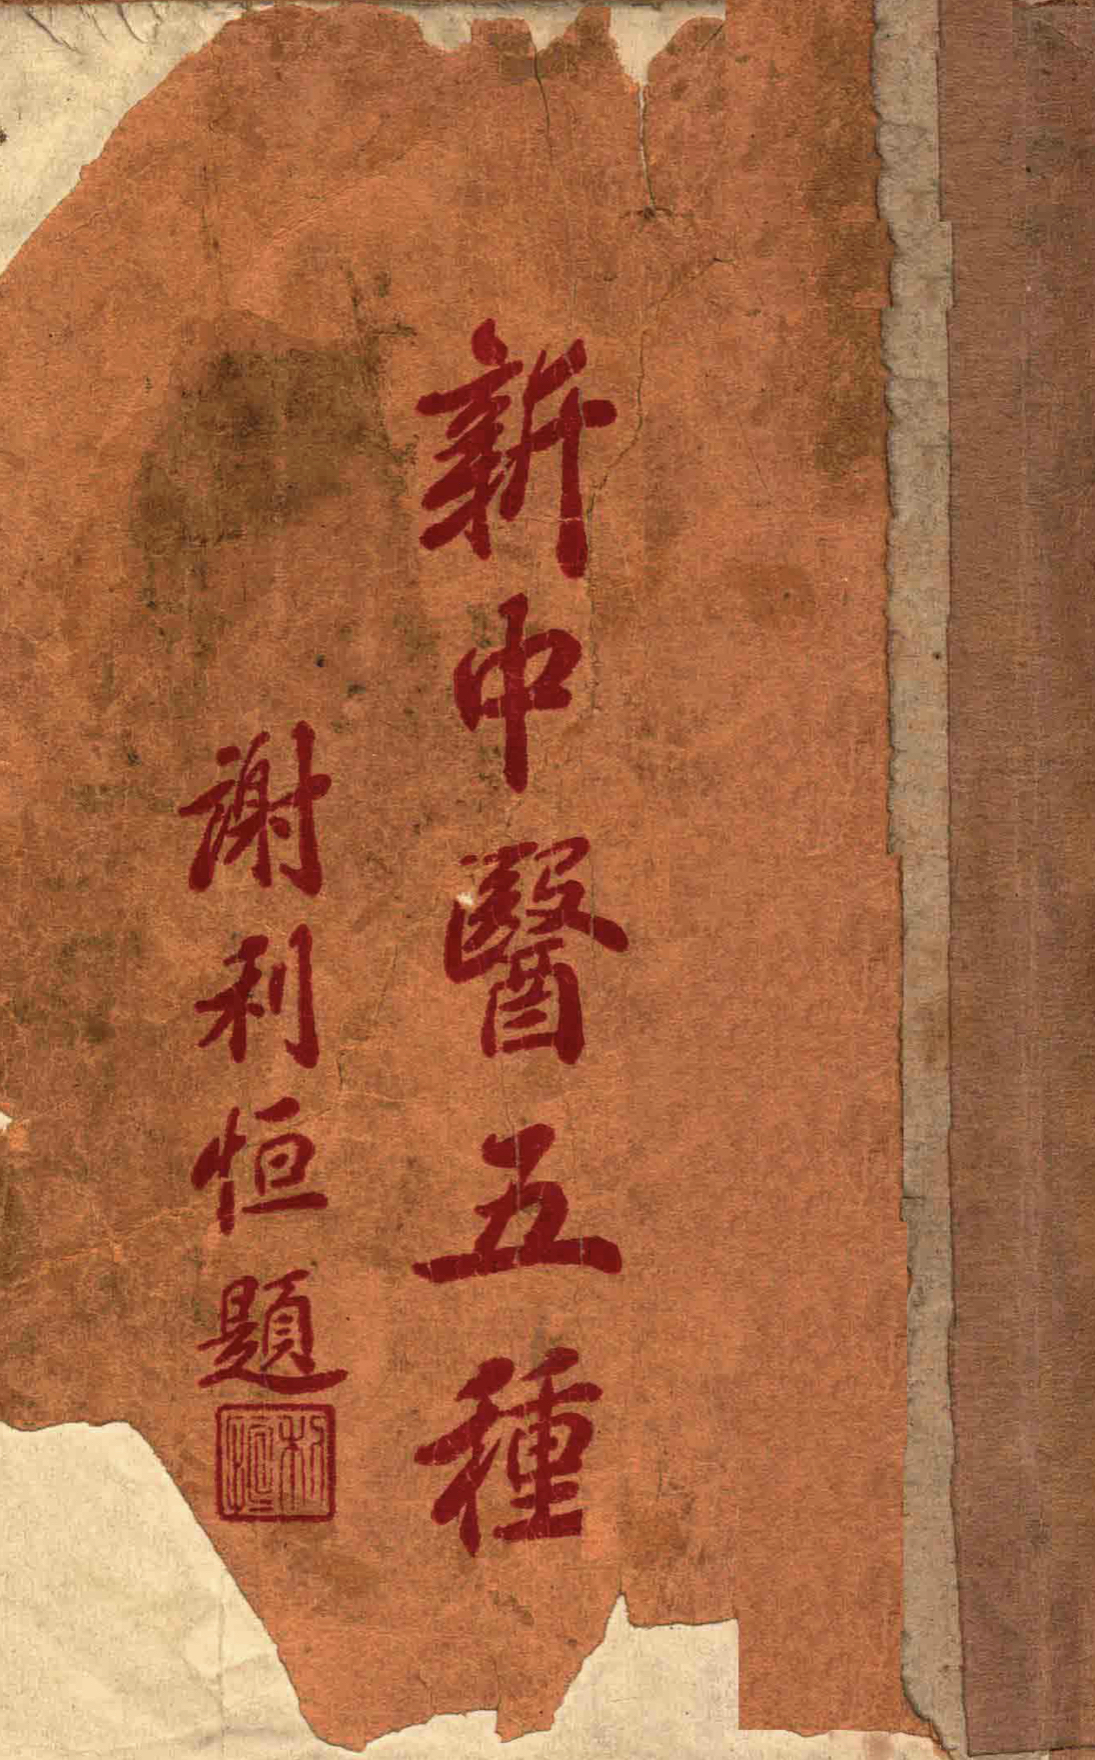 新中醫五種
謝利恒題
利恒